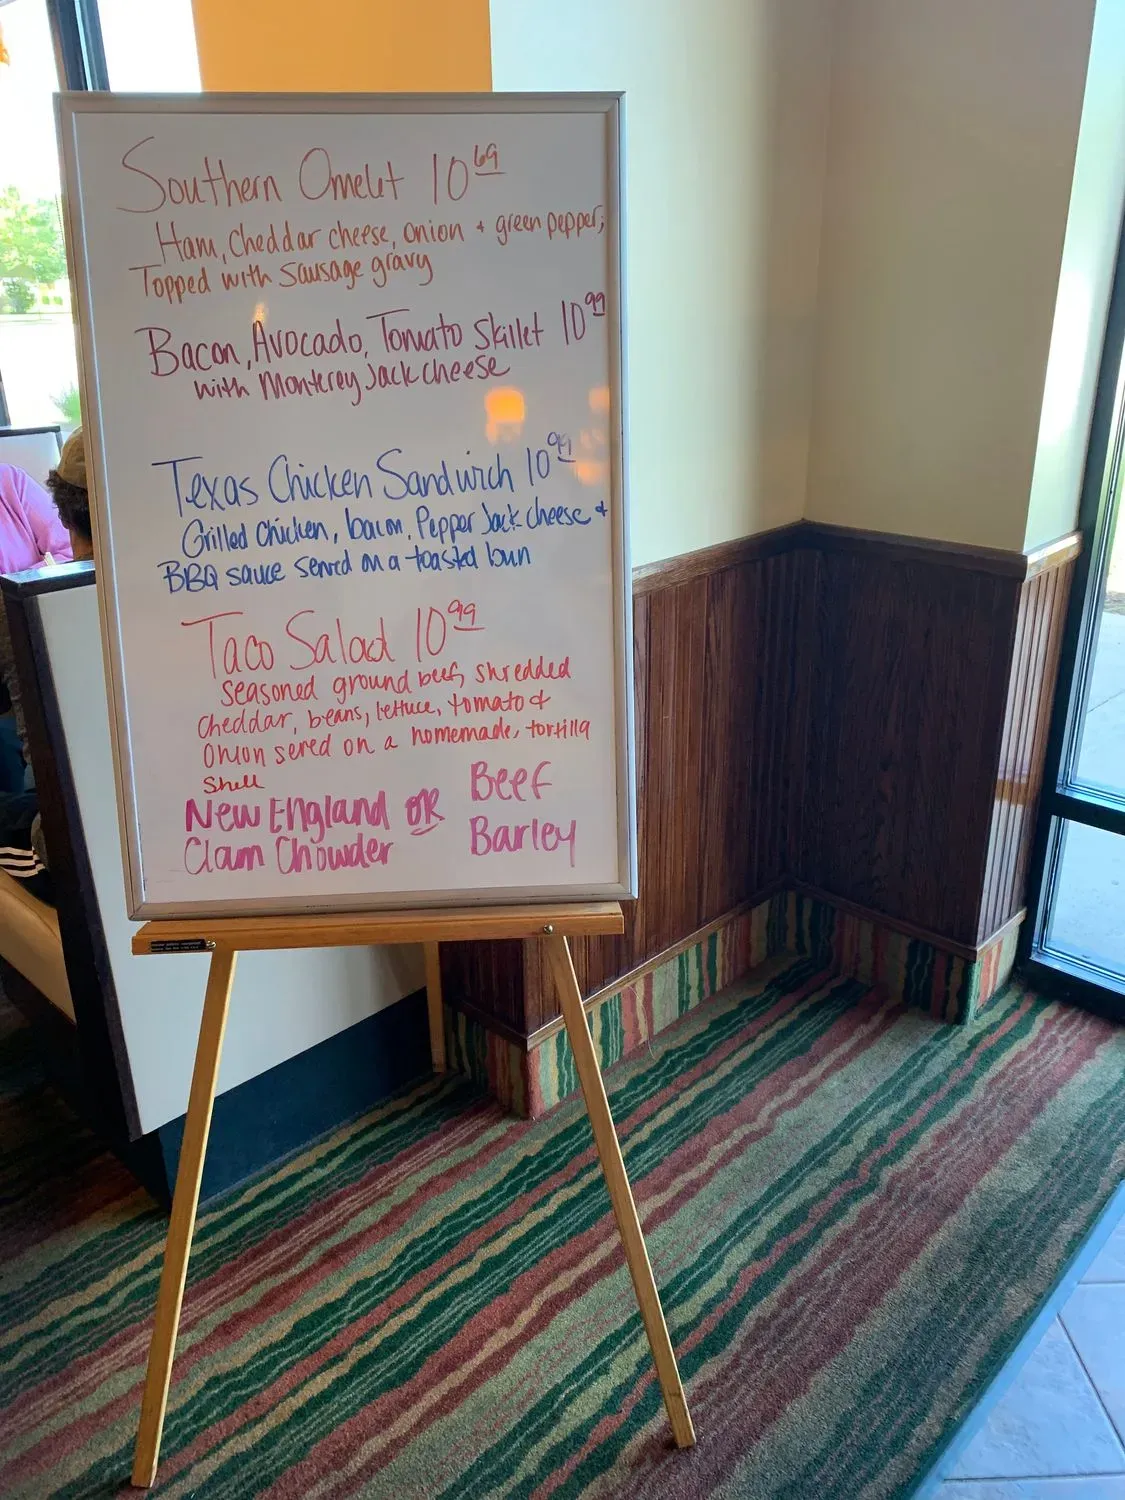 Southern Omelet 10 69
Ham, Cheddar cheese, onion + green pepper,
Topped with sausage gravy
Bacon, Avocado, Tomato Skillet 10 99
with Monterey Jack cheese
Texas Chicken Sandwich 10 99
Grilled Chicken, bacon, Pepper Jack cheese +
BBQ sauce served on a toasted bun
Taco Salad 10 99
seasoned ground beef, shredded
cheddar, beans, lettuce, tomato &
Onion sered on a homemade, tortilla
Shell
New England OR Beef
Clam Chowder Barley